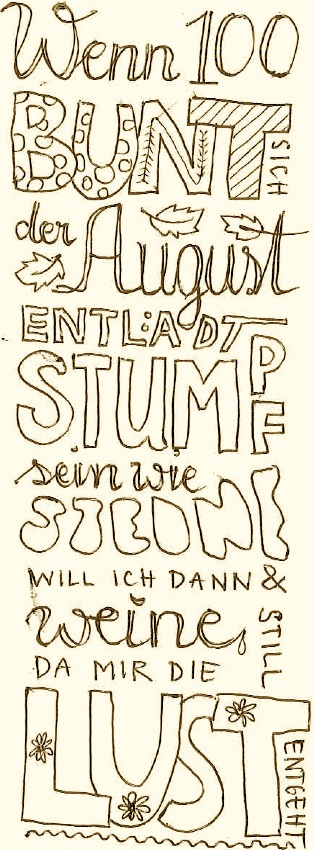 Wenn 100
BUNT SICH
der
August
ENTLÄDT
STUMPF
sein wie
STEINE
WILL ICH DANN &
weine STILL
DA MIR DIE
LUST ENTGEHT